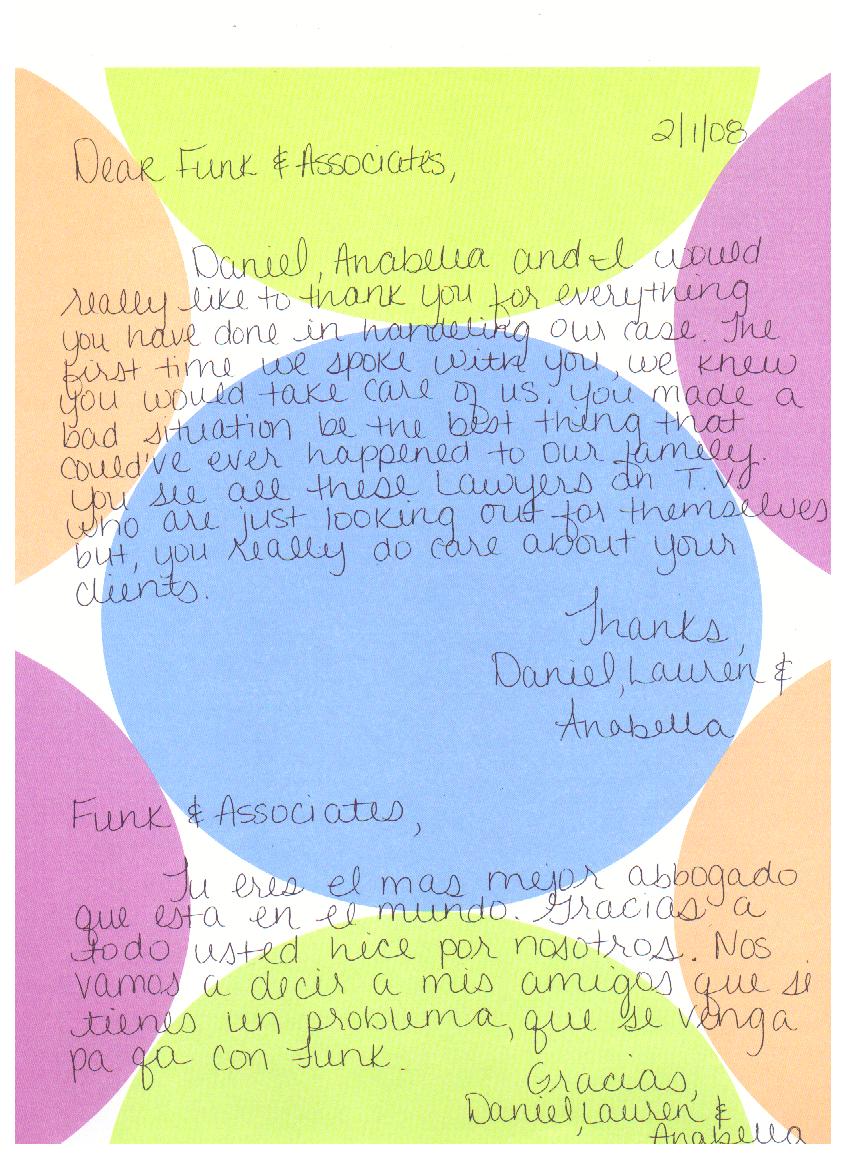 2/1/08
Dear Funk & Associates,
Daniel, Anabella and I would
really like to thank you for everything
you have done in handeling our case. The
first time we spoke with you, we knew
you would take care of us. You made a
bad situation be the best thing that
could've ever happened to our family.
You see all these Lawyers on T.V.
who are just looking out for themselves
but, you really do care about your
clients.
Thanks,
Daniel, Lauren &
Anabella
Funk & Associates,
Tu eres el mas mejor abbogado
que esta en el mundo. Gracias a
todo usted hice por nosotros. Nos
vamos a decir a mis amigos que si
tienes un problema, que se venga
pa qa con Funk.
Gracias,
Daniel, Lauren &
Anabella